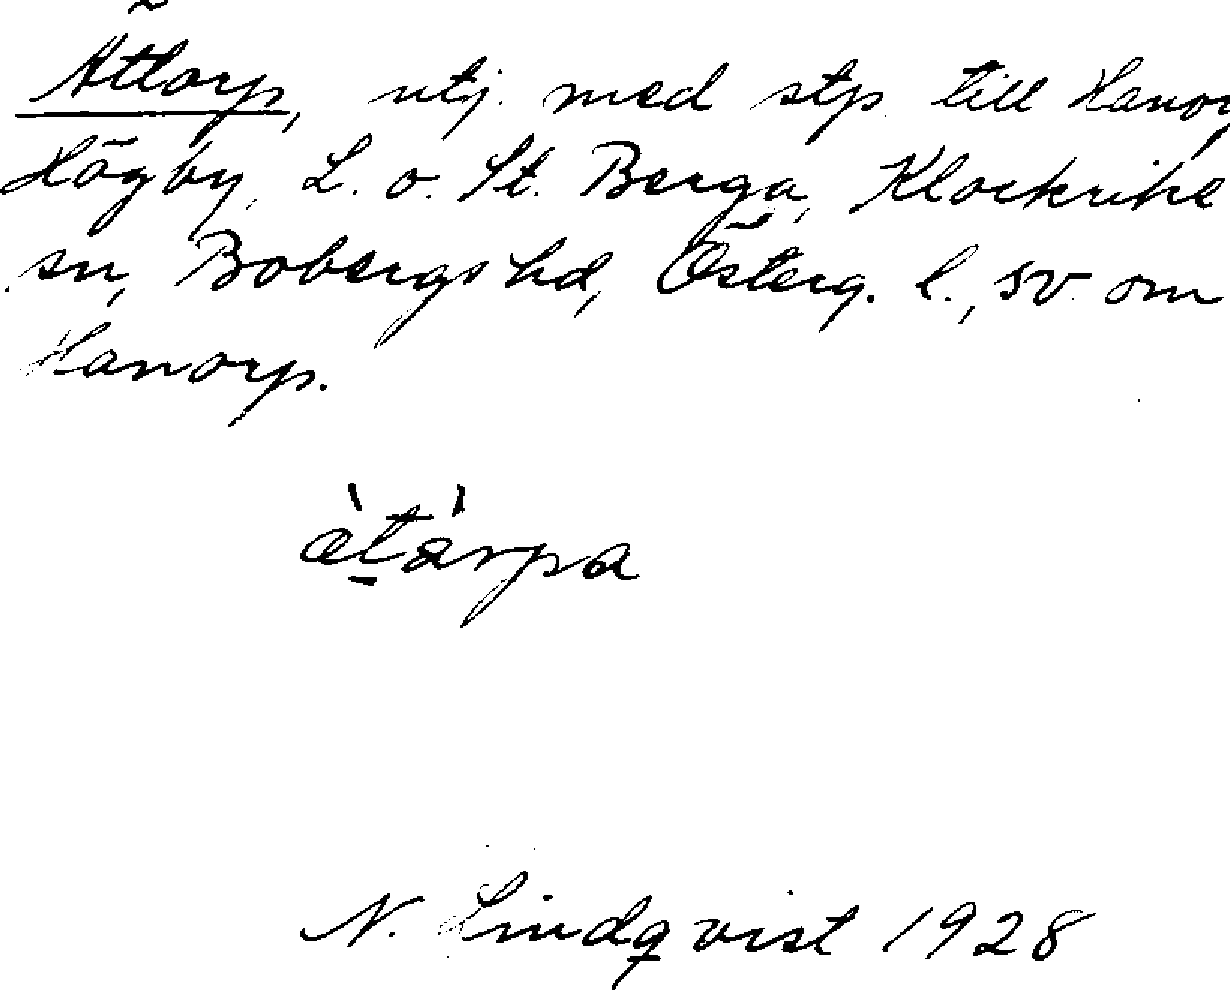 Ättorp, utj. med stp. till Hanorp,
Högby, L. o. St. Berga, Klockrike
sn, Bobergs hd, Österg. l., sv. om
Hanorp.
ètàrpa
N. Lindqvist 1928